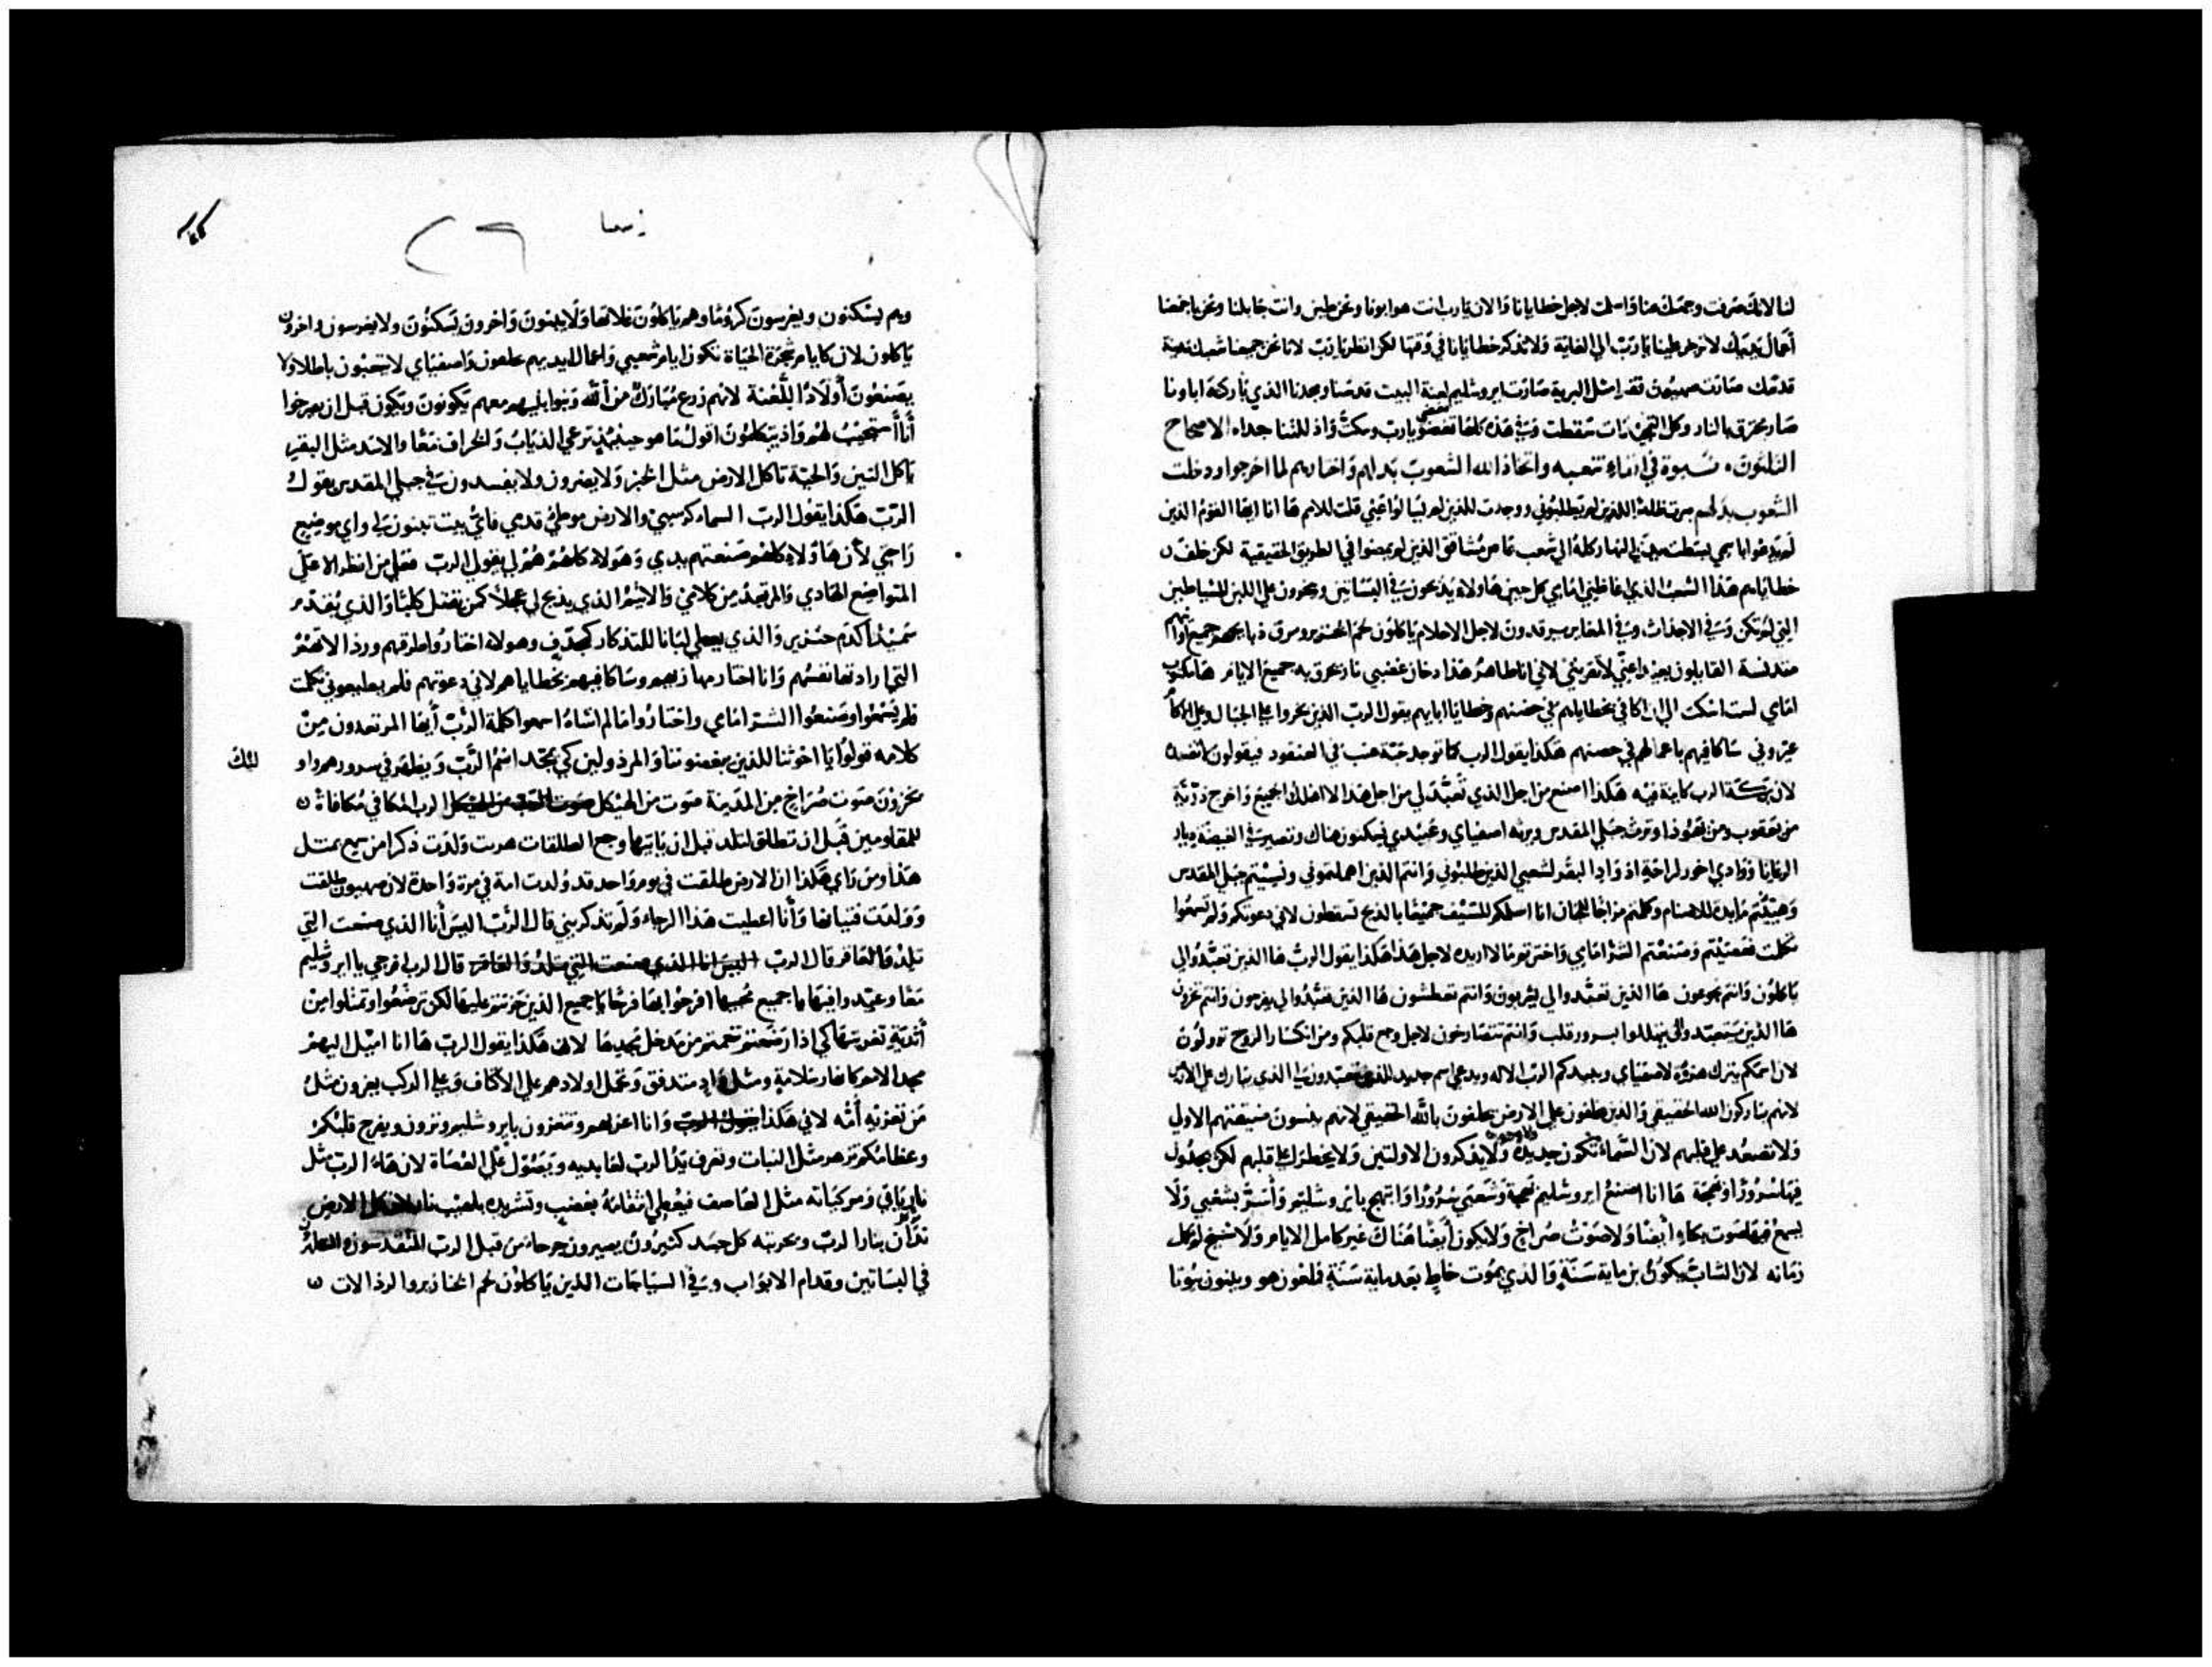 لنا لانك صرفت وجهك عنا واسلمت لاجل خطايانا والان يارب انت هو ابونا ونحن طين وانت جابلنا ونحن ياجمعنا
اعمال يديك لا ترجز علينا يارب الي الغاية ولا تذكر خطايانا في وقتها لكن انظر يارب لاننا نحن جميعنا شعبك مدينة
قدسك صارت صهيون قفر مثل البرية صارت ايروشليم لعنة البيت قدسنا ومجدنا الذي باركه اباونا
صار بحرق بالنار وكل سقطت وفي هذه كلها يارب وسكت واذللتنا جدا الاصحاح
الشعوب بدلهم للذين لم يطلبوني ووجدت للذين لم يسالوا عني قلت للامم ها انا ايضا القوم الذين
لم يدعوا باسمي بسطت يدي النهار كله الي شعب عاص مشاقق الذين لم يمضوا في الطريق الحقيقية لكن خلف
خطاياهم هذا الشعب الذي غاظني امامي كل حين هاولاء يذبحون في البساتين ويبخرون علي اللبن للشياطين
التي لم تكن وفي الاجداث وفي المغاير يرقدون لاجل الاحلام ياكلون لحم الخنزير ومرق ذبايحهم جميع اوانيهم
مندنسة القايلون بعيدا عني لا تقربني لاني انا طاهر هذا دخان غضبي نار تحرق به جميع الايام ها مكتوب
امامي لست اسكت الي ان اكافي خطاياهم في حضنهم وخطايا ابايهم يقول الرب الذين بخروا علي الجبال وعلي الاكام
عيروني ساكافيهم باعمالهم في حضنهم هكذا يقول الرب كما توجد حبة عنب في العنقود فيقولون لا تفسد
لان بركة الرب كاينة فيه هكذا اصنع من اجل الذي تعبد لي من اجل هذا لا اهلك الجميع واخرج ذرية
من يعقوب ومن يهوذا وترث جبلي المقدس ويرثه اصفياي وعبيدي يسكنون هناك وتصير في الغيضة
الرعايا ووادي اخور لراحة اذواد البقر لشعبي الذين طلبوني وانتم الذين اهملتموني ونسيتم جبلي المقدس
وهييتم مايدة للاصنام انا اسلمكم للسيف جميعا بالذبح تسقطون لاني دعوتكم ولم تسمعوا
تكلمت فعصيتم وصنعتم الشر امامي واخترتم ما لا اريده لاجل هذا هكذا يقول الرب ها الذين تعبدوا لي
ياكلون وانتم تجوعون ها الذين تعبدوا لي يشربون وانتم تعطشون ها الذين تعبدوا لي يفرحون وانتم تخزون
ها الذين يتعبدوا لي يتهللوا بسرور قلب وانتم تتصارخون لاجل وجع قلبكم ومن انكسار الروح تولولون
لان اسمكم يترك لاصفياي ويبيدكم الرب الاله ويدعي اسم جديد للذين يتعبدون لي الذي يتبارك علي الارض
لانهم يباركون الله الحقيقي والذين يحلفون علي الارض يحلفون بالله الحقيقي لانهم ينسون ضيقتهم الاولي
ولا تصعد علي قلبهم لان السماء تكون جديدة ولا يذكرون الاولتين ولا يخطر علي قلبهم لكن يجدون
فيها سرورا وبهجة ها انا اصنع ايروشليم بهجة وشعبي سرورا وابتهج بايروشليم واسر بشعبي ولا
يسمع فيها صوت بكاء ايضا ولا صوت صراخ ولا يكون ايضا هناك غير كامل الايام ولا شيخ لم يكمل
زمانه لان الشاب يكون بن ماية سنة والذي يموت خاطي بعد ماية سنة فلعون هو ويبنون بيوتا
وهم يسكنون ويغرسون كروما وهم ياكلون غلاتها ولا يبنون واخرون يسكنون ولا يغرسون واخرون
ياكلون لان كايام شجرة الحياة تكون ايام شعبي واعمال ايديهم واصفياي لا يتعبون باطلا ولا
يصنعون اولادا للعنة لانهم زرع مبارك من الله وبنوا بنيهم معهم يكونون ويكون قبل ان يصرخوا
انا استجيب لهم واذ يتكلمون اقول ما هو حينيذ ترعي الذياب والخراف معا والاسد مثل البقر
ياكل التبن والحية تاكل الارض مثل الخبز ولا يضرون ولا يفسدون في جبلي المقدس يقول
الرب هكذا يقول الرب السماء كرسيي والارض موطي قدمي فاي بيت تبنون لي واي موضع
راحتي لان هاولاء كلهم صنعتهم يدي وهولاء كلهم هم لي يقول الرب فعلي من انظر الا علي
المتواضع الهادي والمرتعد من كلامي والاثيم الذي يذبح لي عجلا كمن يقتل كلبا والذي يقدم
سميدا كدم خنزير والذي يعطي لبانا للتذكار كمجدف وهولاء اختاروا طرقهم ورذالاتهم
التي ارادتها نفسهم وانا اختار مهازيهم وساكافيهم بخطاياهم لاني دعوتهم فلم يطيعوني تكلمت
فلم يسمعوا وصنعوا الشر امامي واختاروا ما لم اشاء اسمعوا كلمة الرب ايها المرتعدون من
كلامه قولوا يا اخوتنا للذين يبغضوننا والمرذولين كي يمجد اسم الرب ويظهر في سرورهم واوليك
يخزون صوت صراخ من المدينة صوت من الهيكل صوت الرب المكافي مكافاة
للمقاومين قبل ان تطلق لتلد قبل ان ياتيها وجع الطلقات هربت وولدت ذكرا من سمع بمثل
هذا ومن راي هكذا ان الارض طلقت في يوم واحد قد ولدت امة في مرة واحدة لان صهيون طلقت
وولدت فتيانها وانا اعطيت هذا الرجاء ولم تذكريني قال الرب اليس انا الذي صنعت التي
تلد والعاقر قال الرب اليس انا الذي صنعت التي تلد والعاقر قال الرب افرحي يا ايروشليم
معا وعيدوا فيها يا جميع محبيها افرحوا بها فرحا يا جميع الذين حزنتم عليها لكي ترضعوا وتمتلوا من
لان هكذا يقول الرب ها انا اميل اليهم
مجد الامم ومثل واد متدفق وتحمل اولادهم علي الاكتاف وعلي الركب يعزون مثل
من تعزيه امه لاني هكذا وانا اعزيهم وتتعزون بايروشليم وترون ويفرح قلبكم
وعظامكم تزهر مثل النبات وتعرف يد الرب لعابديه علي العصاة لان هاء الرب مثل
نار ياتي ومركباته مثل العاصف فيعطي انتقامه بغضب وتشريده بلهيب نار
بنار الرب وبحربته كل جسد كثيرون يصيرون جرحا من قبل الرب المتقدسون
في البساتين وقدام الابواب وفي السياجات الذين ياكلون لحم الخنازير والرذالات